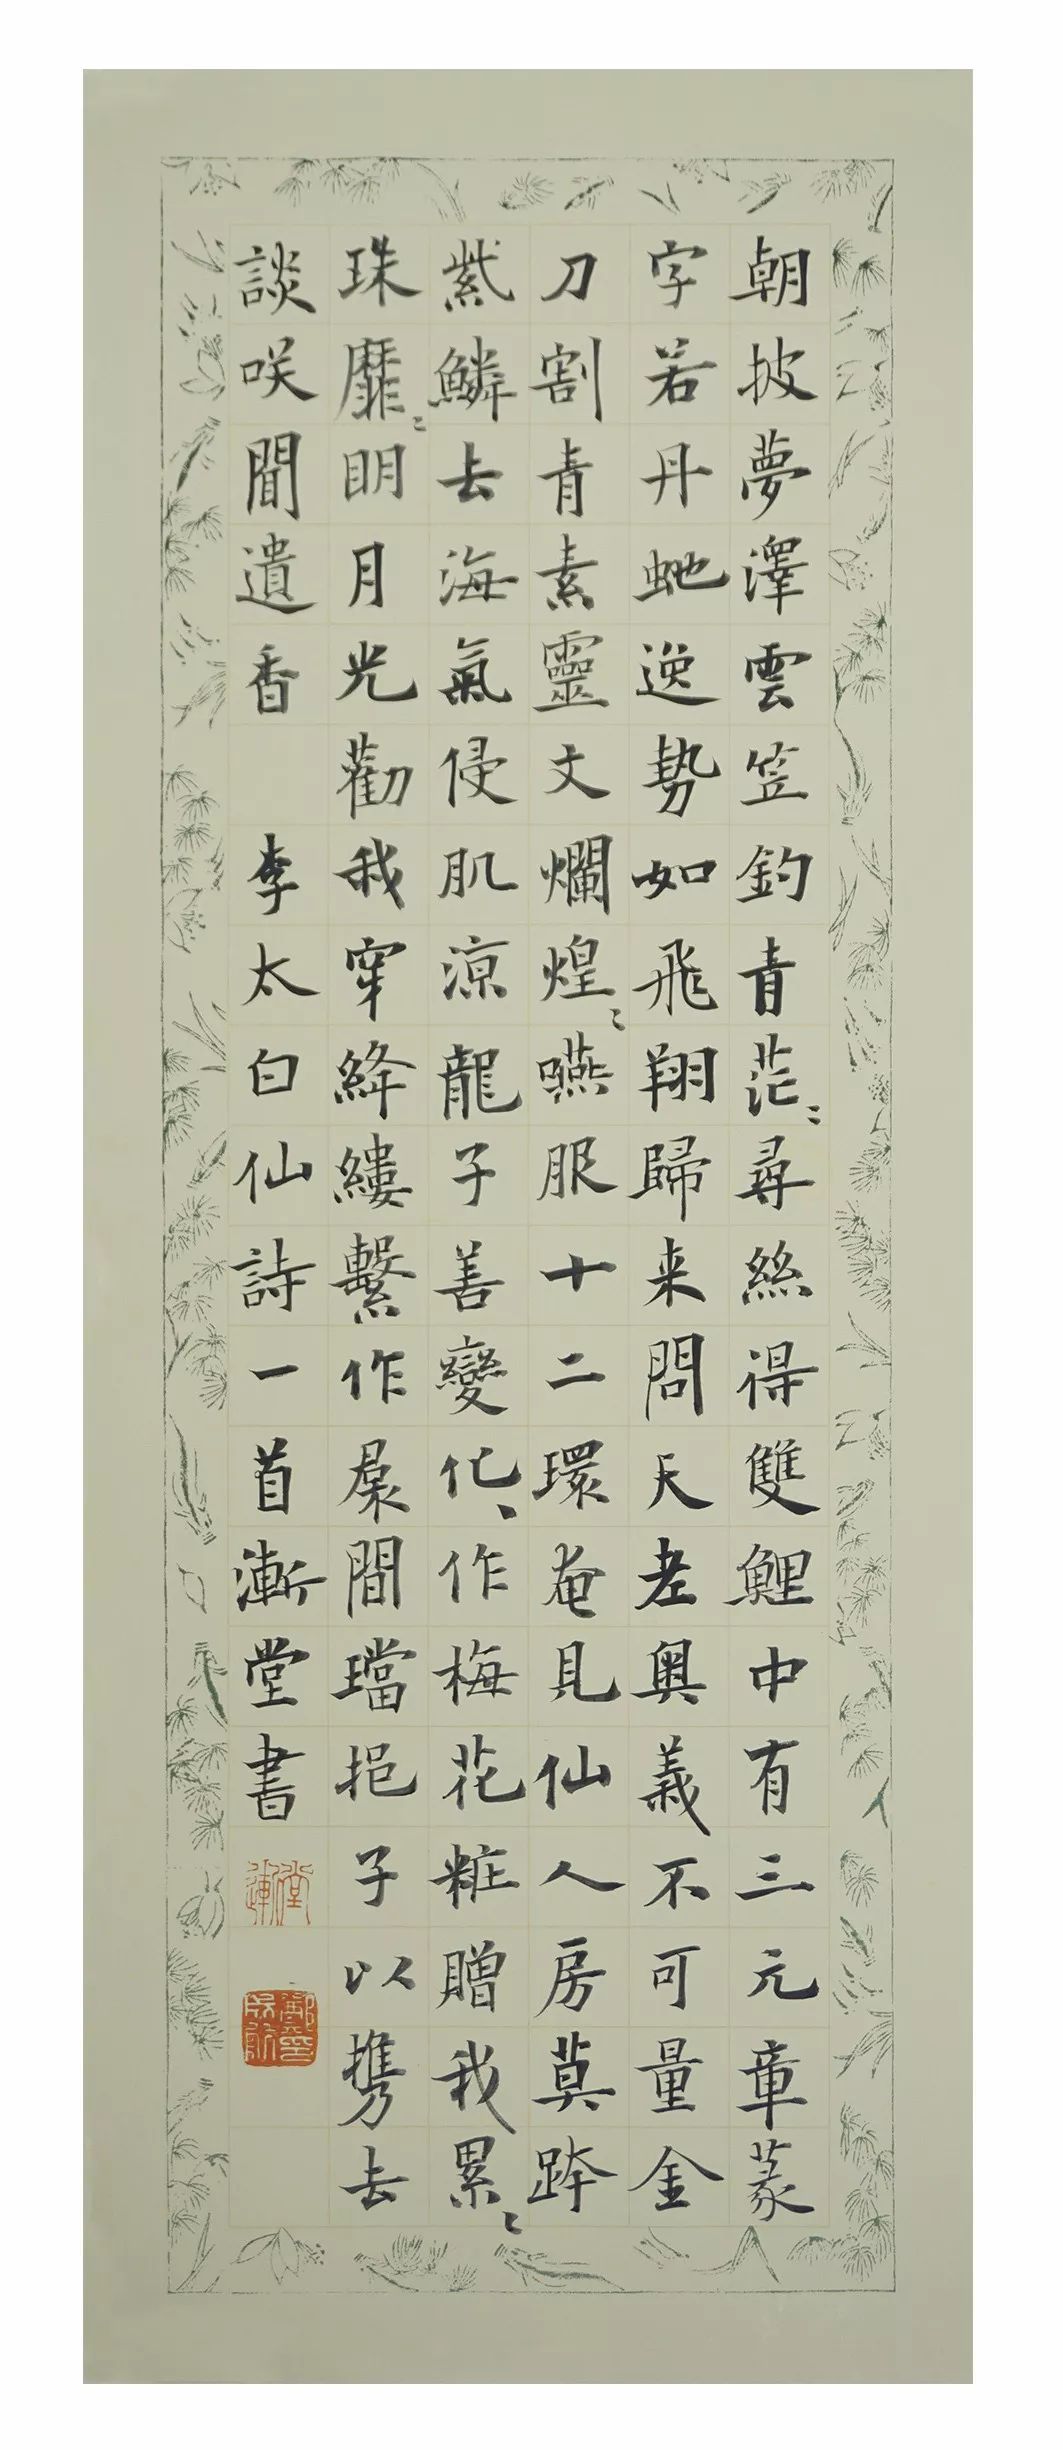 朝披夢澤雲笠釣青茫〻尋絲得雙鯉中有三元章篆
字若丹虵逸勢如飛翔歸来問天老奥義不可量金
刀割青素靈文爛煌〻嚥服十二環奄見仙人房莫跨
紫鱗去海氣侵肌涼龍子善變化、作梅花粧贈我累〻
珠靡〻明月光勸我穿絳縷繫作裙間璫挹子以攜去
談咲聞遺香 李太白仙詩一首漸堂書